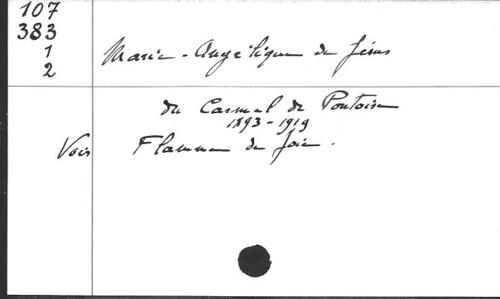 107
383
1
2
Marie-Angélique de Jésus
du Carmel de Pontoise
1893-1919
Voir Flamme de joie.